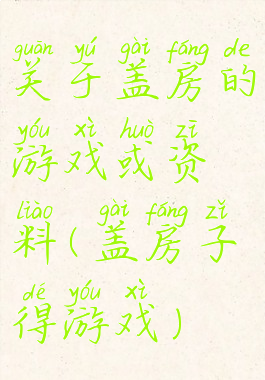 guān yú gài fáng de
关于盖房的
yóu xì huò zī
游戏或资
liào gài fáng zǐ
料(盖房子
dé yóu xì
得游戏)